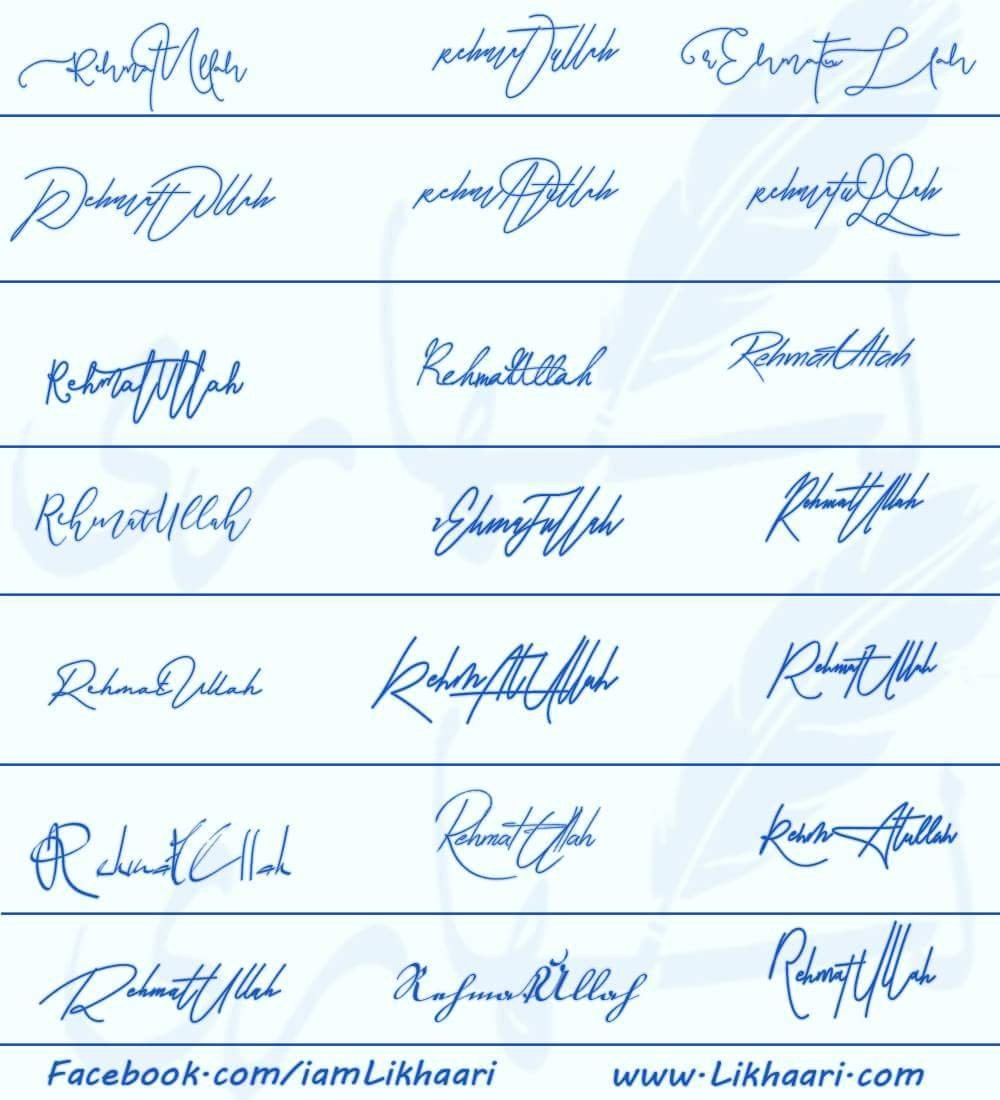 RehmatUllah rehmatUllah rEhmatuLlah
RehmatUllah rehmAtullah rehmatuLLah
RehmatUllah RehmatUllah RehmatUllah
RehmatUllah rEhmaTullah RehmatUllah
RehmatUllah RehmAtUllah RehmatUllah
RehmatUllah RehmatUllah RehmAtullah
RehmatUllah RehmatUllah RehmatUllah
Facebook.com/iamLikhaari www.Likhaari.com